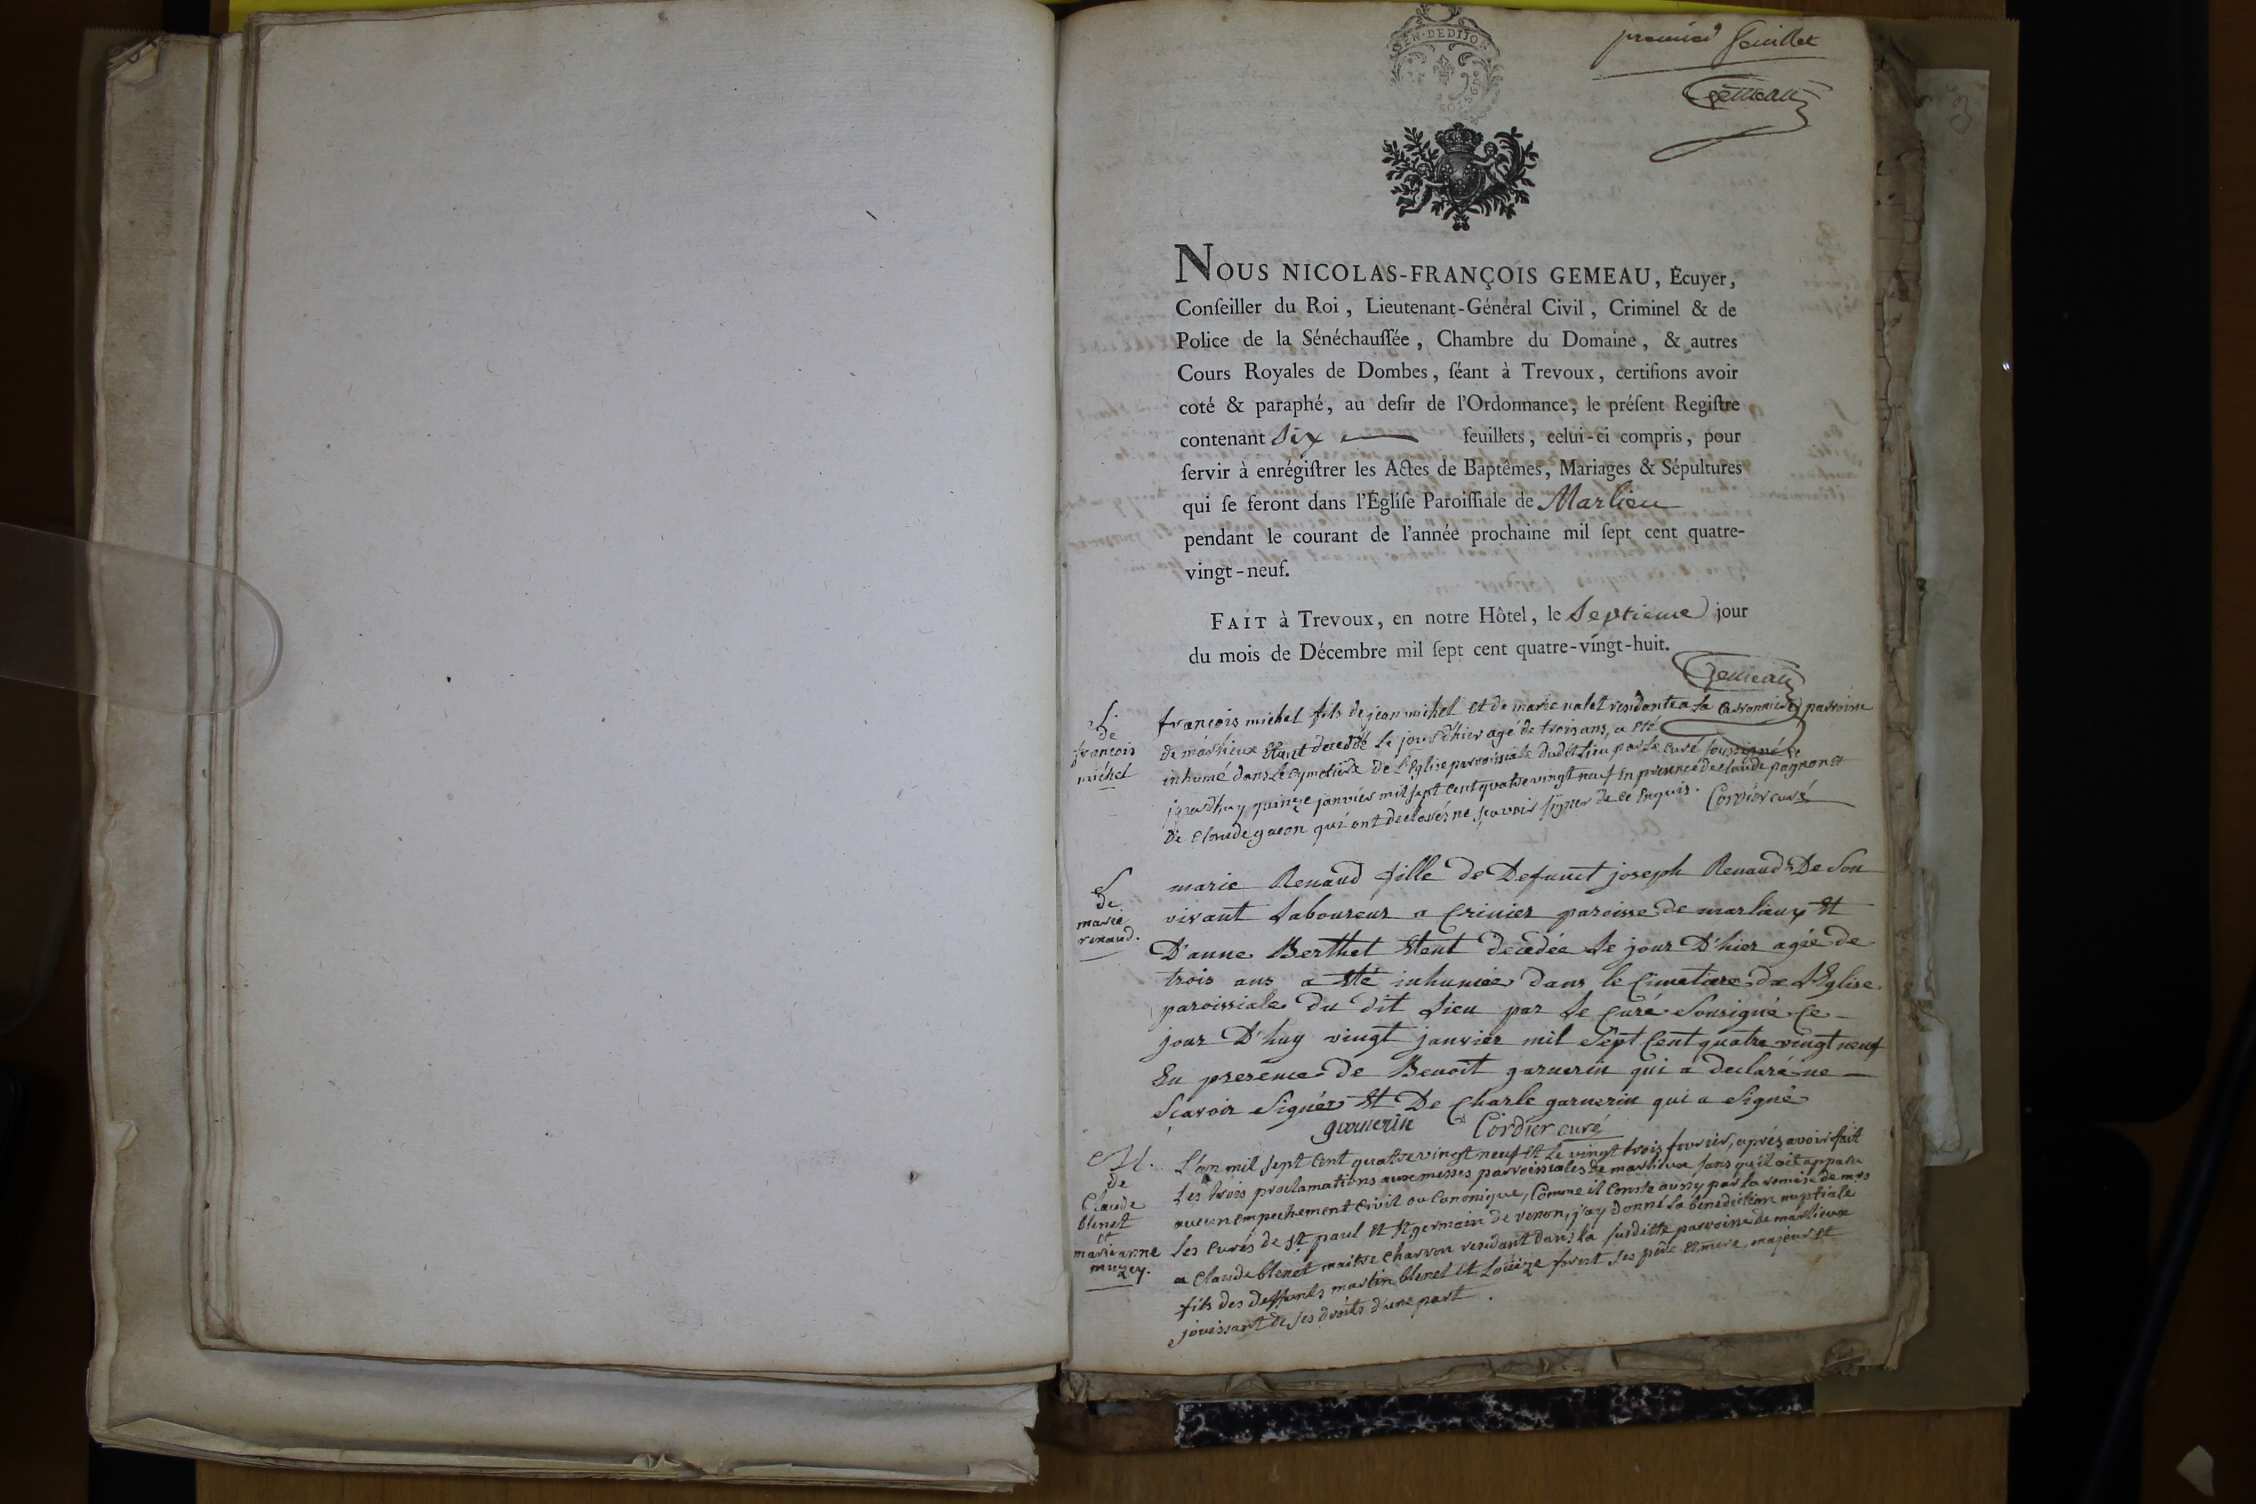 GEN. DE DIJON
premier feuillet
Gemeau
NOUS NICOLAS-FRANÇOIS GEMEAU, Ecuyer,
Conſeiller du Roi, Lieutenant-Général Civil, Criminel & de
Police de la Sénéchauſſée, Chambre du Domaine, & autres
Cours Royales de Dombes, ſéant à Trevoux, certifions avoir
coté & paraphé, au deſir de l'Ordonnance, le préſent Regiſtre
contenant Six feuillets, celui-ci compris, pour
ſervir à enrégiſtrer les Actes de Baptêmes, Mariages & Sépultures
qui ſe feront dans l'Egliſe Paroiſſiale de Marlieu
pendant le courant de l'année prochaine mil ſept cent quatre-
vingt-neuf.
FAIT à Trevoux, en notre Hôtel, le Septieme jour
du mois de Décembre mil ſept cent quatre-vingt-huit.
Gemeau
S.
de
françois
michel
françois michel fils de jean michel et de marie nalet residante a la parroisse
de marlieux Etant decedé le jour d'hier agé de trois ans, a eté
inhumé dans le cymetiere de l'Eglise parroissiale dudit lieu par le curé soussigné ce
jourdhuy quinze janvier mil sept cent quatre vingt neuf en presence de claude pagnon et
de claude gacon qui ont declaré ne sçavoir signer de ce enquis. Cordier curé
S
de
marie
renaud.
marie Renaud fille de Defunct joseph Renaud De Son
vivant Laboureur a Crinier paroisse de marlieux Et
D'anne Berthet Etent decedée Le jour D'hier agée de
trois ans a Eté inhumée dans le Cimetiere de L'Eglise
paroissiale du dit Lieu par Le Curé Sousigné Ce
jour D'huy vingt janvier mil Sept Cent quatre vingt neuf
En presence de Benoit garnerin qui a declaré ne
Sçavoir Signer Et De Charle garnerin qui a Signé
garnerin Cordier curé
M.
de
Claude
blenet
et
marianne
muzey.
L'an mil sept cent quatre vingt neuf et le vingt trois fevrier, après avoir fait
les trois proclamations aux messes parroissiales de marlieux sans qu'il ait apparu
aucun empechement civil ou canonique, Comme il conste aussy par la remise de mrs
les curés de st. paul et st. germain de renon, j'ay donné la benediction nuptiale
a Claude blenet maitre charron residant dans la susditte parroisse de marlieux
fils des deffunts martin blenet et Loüize forest ses père et mère, majeur et
jouissant de ses droits d'une part.